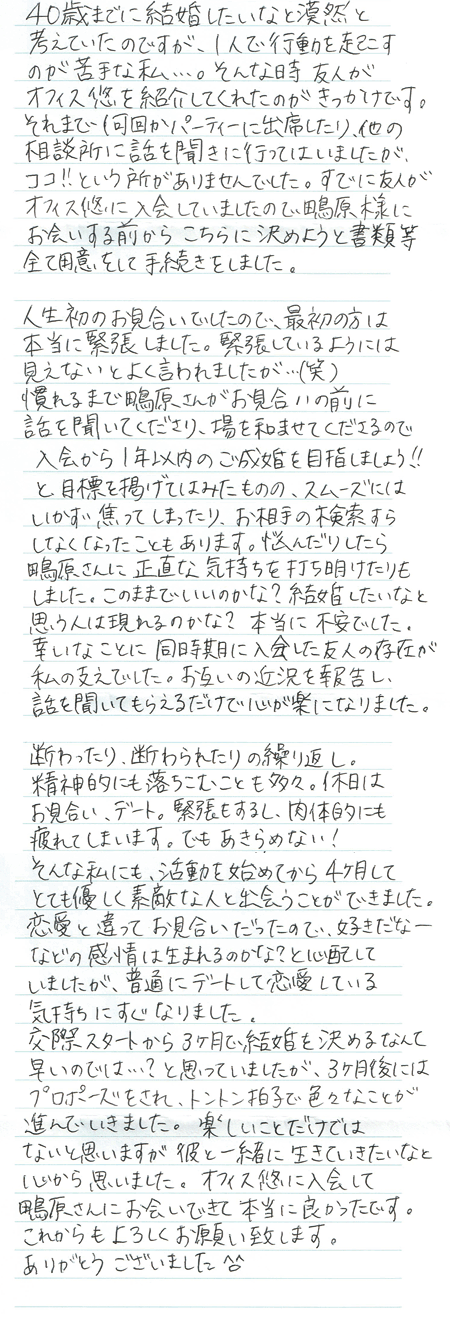 40歳までに結婚したいなと漠然と
考えていたのですが、1人で行動を起こす
のが苦手な私…。そんな時 友人が
オフィス悠を紹介してくれたのがきっかけです。
それまで何回かパーティーに出席したり、他の
相談所に話を聞きに行ってはいましたが、
ココ!!という所がありませんでした。すでに友人が
オフィス悠に入会していましたので、鴫原様に
お会いする前から こちらに決めようと書類等
全て用意をして手続きをしました。
人生初のお見合いでしたので、最初の方は
本当に緊張しました。緊張しているようには
見えないとよく言われましたが…(笑)
慣れるまで鴫原さんがお見合いの前に
話を聞いてくださり、場を和ませてくださるので
入会から1年以内のご成婚を目指しましょう!!
と、目標を掲げてはみたものの、スムーズには
いかず 焦ってしまったり、お相手の検索すら
しなくなったこともあります。悩んだりしたら
鴫原さんに 正直な気持ちを打ち明けたりも
しました。このままでいいのかな? 結婚したいなと
思う人は現れるのかな? 本当に不安でした。
幸いなことに 同時期に入会した友人の存在が
私の支えでした。お互いの近況を報告し、
話を聞いてもらえるだけで心が楽になりました。
断わったり、断わられたりの繰り返し。
精神的にも落ちこむことも多々。休日は
お見合い、デート。緊張もするし、肉体的にも
疲れてしまいます。でも あきらめない!
そんな私にも、活動を始めてから4ヶ月して
とても優しく素敵な人と出会うことができました。
恋愛と違って お見合いだったので、好きだなー
などの感情は生まれるのかな?と心配して
いましたが、普通にデートして恋愛している
気持ちにすぐなりました。
交際スタートから3ヶ月で、結婚を決めるなんて
早いのでは…? と思っていましたが、3ヶ月後には
プロポーズをされ、トントン拍子で色々なことが
進んでいきました。 楽しいことだけでは
ないと思いますが 彼と一緒に生きていきたいなと
心から思いました。 オフィス悠に入会して
鴫原さんにお会いできて 本当に良かったです。
これからもよろしくお願い致します。
ありがとう ございました ^^